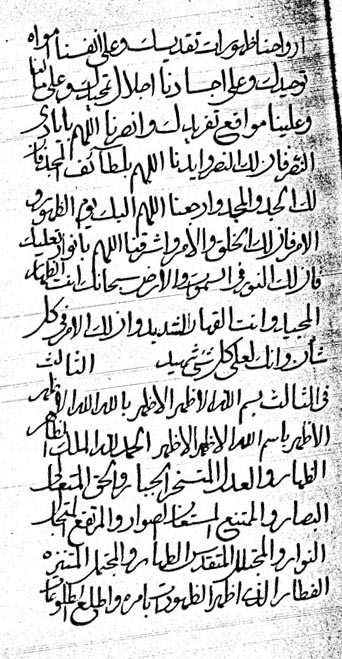 ارواحنا ظهورات تقديسك وعلى انفسنا امواه
توحيدك وعلى اجسادنا اجلال تمجيدك وعلى
وعلينا مواقع تفريدك وانصرنا اللهم بايادي
النصر فان لك النصر وايدنا اللهم بلطائف المجد فان
لك الحمد والمجد وارجعنا اللهم اليك يوم الظهور و
الامر فان لك الخلق والامر واشرقنا اللهم بانوار تجليك
فان لك النور في السموات والارض سبحانك انت الظهار
المجيد وانت القهار الشديد وان لك الامر في كل
شأن وانك لعلى كل شئ شهيد الثالث
في الثالث بسم الله الاظهر الاظهر بالله الله الاظهر
الاظهر باسم الله الاظهر الاظهر الحمد لله الملك
الظهار والعدل المتسخر الجبار والحق المتعال
البصار والممتنع المستعان الصوار والمرتفع المتجلل
النوار والمجلل المتقدس الطهار والمجمل المتنزه
الفطار الذي اظهر الظهورات بامره واطلع